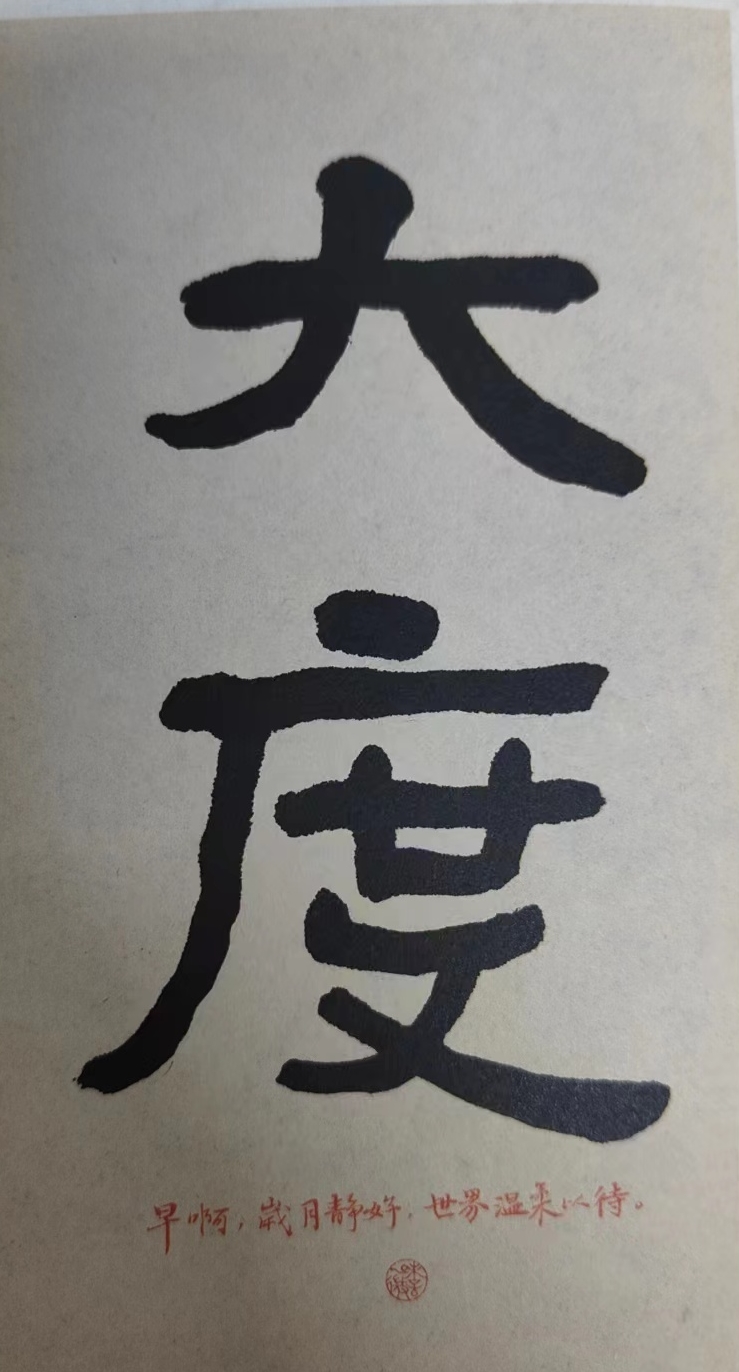 大
度
早啊，歲月静好，世界温柔以待。